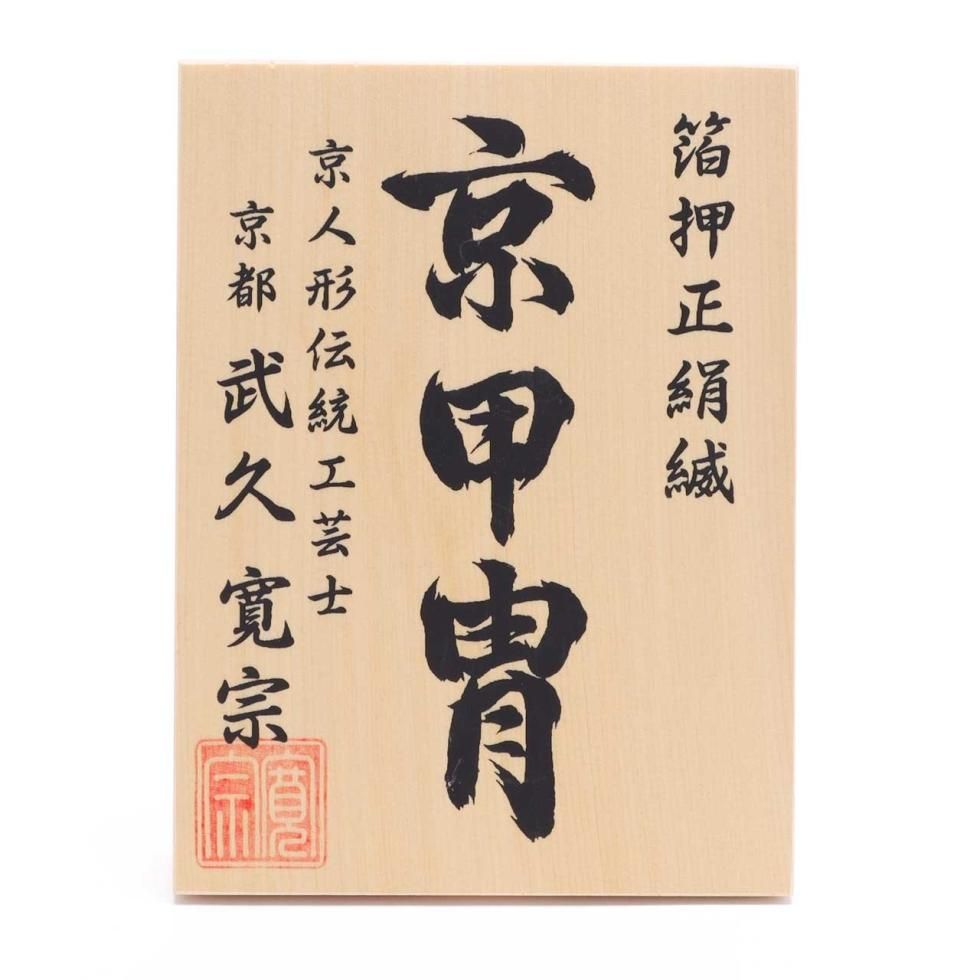 箔押正絹縅
京甲冑
京人形伝統工芸士
京都 武久寛宗
寛宗